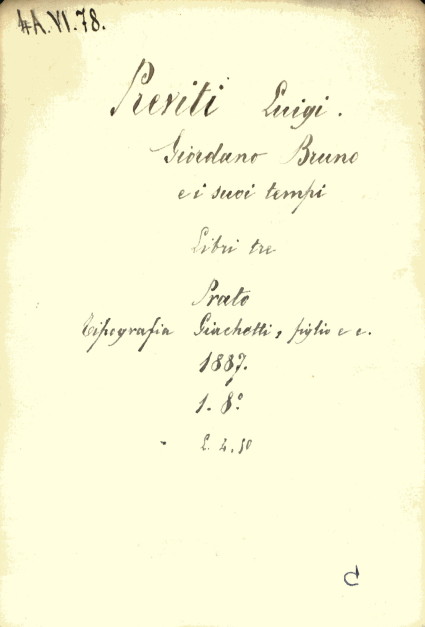 4A.VI.78.
Previti Luigi.
Giordano Bruno
e i suoi tempi
Libri tre
Prato
Tipografia Giachetti, figlio e c.
1887.
1. 8º
L. 4,50
C